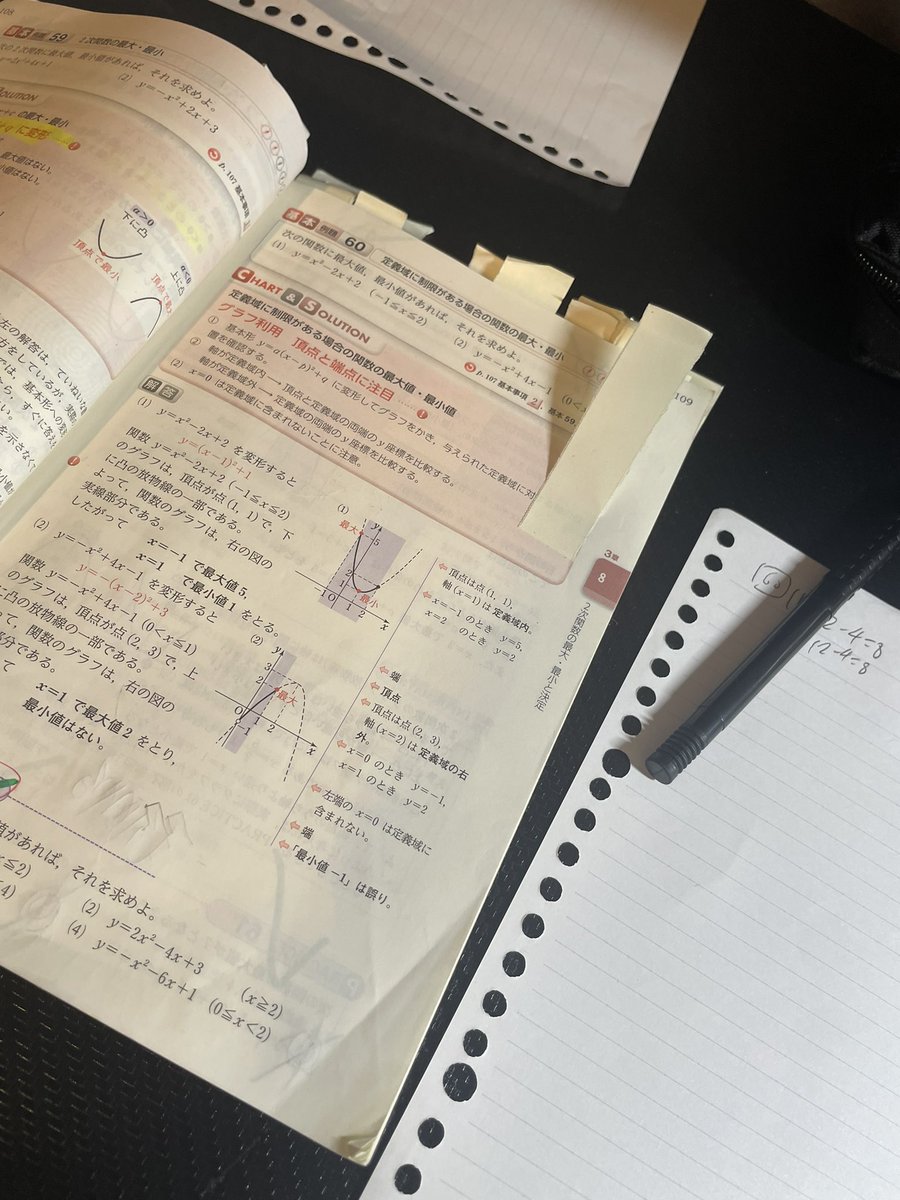 108
基本 例題 59 2次関数の最大・最小
次の2次関数に最大値，最小値があれば，それを求めよ。
(2) y=-x²+2x+3
SOLUTION
の最大・最小
に変形
p.107 基本事項
最大値はない。
小値はない。
a>0
下に凸
頂点で最小
a<0
上に凸
左の解答は，
基本 例題 60 定義域に制限がある場合の関数の最大・最小
次の関数に最大値，最小値があれば，それを求めよ。
(1) y=x²-2x+2 (-1≦x≦2)
(2) y=-x²+4x-1 (0<x
p.107 基本事項 2, 基本 59
CHART & SOLUTION
定義域に制限がある場合の関数の最大値・最小値
グラフ利用 頂点と端点に注目 …… !
① 基本形 y=a(x-p)²+q に変形してグラフをかき，与えられた定義域に対
置を確認する。
② 軸が定義域内 → 頂点と定義域の両端のy座標を比較する。
軸が定義域外 → 定義域の両端のy座標を比較する。
(2) x=0 は定義域に含まれないことに注意。
109
解答
(1) y=x²-2x+2 を変形すると
y=(x-1)²+1
関数 y=x²-2x+2 (-1≦x≦2)
のグラフは，頂点が点 (1, 1) で，下
に凸の放物線の一部である。
よって，関数のグラフは，右の図の
実線部分である。
したがって
x=-1 で最大値 5，
x=1 で最小値 1 をとる。
(1)
最大
y
5
2
1
最小
O
1
2
x
⇦ 頂点は点 (1, 1)，
軸 (x=1) は定義域内。
⇦ x=-1 のとき y=5,
x=2 のとき y=2
⇦ 端
⇦ 頂点
(2) y=-x²+4x-1 を変形すると
y=-(x-2)²+3
関数 y=-x²+4x-1 (0<x≦1)
のグラフは，頂点が点 (2, 3) で，上
に凸の放物線の一部である。
って，関数のグラフは，右の図の
部分である。
て
x=1 で最大値 2 をとり，
最小値はない。
(2)
y
3
2
最大
O
1
2
x
⇦ 頂点は点 (2, 3)，
軸 (x=2) は定義域の右
外。
⇦ x=0 のとき y=-1,
x=1 のとき y=2
⇦ 左端の x=0 は定義域に
含まれない。
⇦ 端
⇦「最小値 -1」は誤り。
3章
8
2次関数の最大・最小と決定
値があれば，それを求めよ。
x≦2)
(2) y=2x²-4x+3 (x≧2)
4)
(4) y=-x²-6x+1 (0≦x<2)
2-4=8
12-4=8